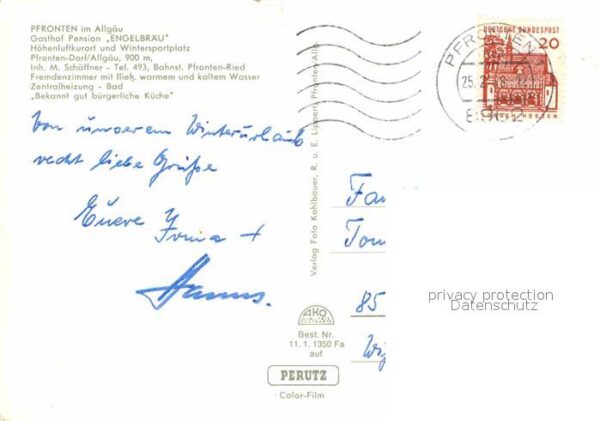 PFRONTEN im Allgäu
Gasthof Pension „ENGELBRÄU"
Höhenluftkurort und Wintersportplatz
Pfronten-Dorf/Allgäu, 900 m,
Inh. M. Schäffner - Tel. 493, Bahnst. Pfronten-Ried
Fremdenzimmer mit fließ. warmem und kaltem Wasser
Zentralheizung - Bad
„Bekannt gut bürgerliche Küche"
Von unserem Winterurlaub
recht liebe Grüße
Euere Irma +
Hannes.
Verlag Foto Kohlbauer, R. u. E. Lippert, Pfronten/Allg.
AKO
Best. Nr.
11. 1. 1350 Fa
auf
PERUTZ
Color-Film
PFRONTEN
25. 2.
DEUTSCHE BUNDESPOST
20
LORSCH/HESSEN
Fa
Tom
85
privacy protection
Datenschutz